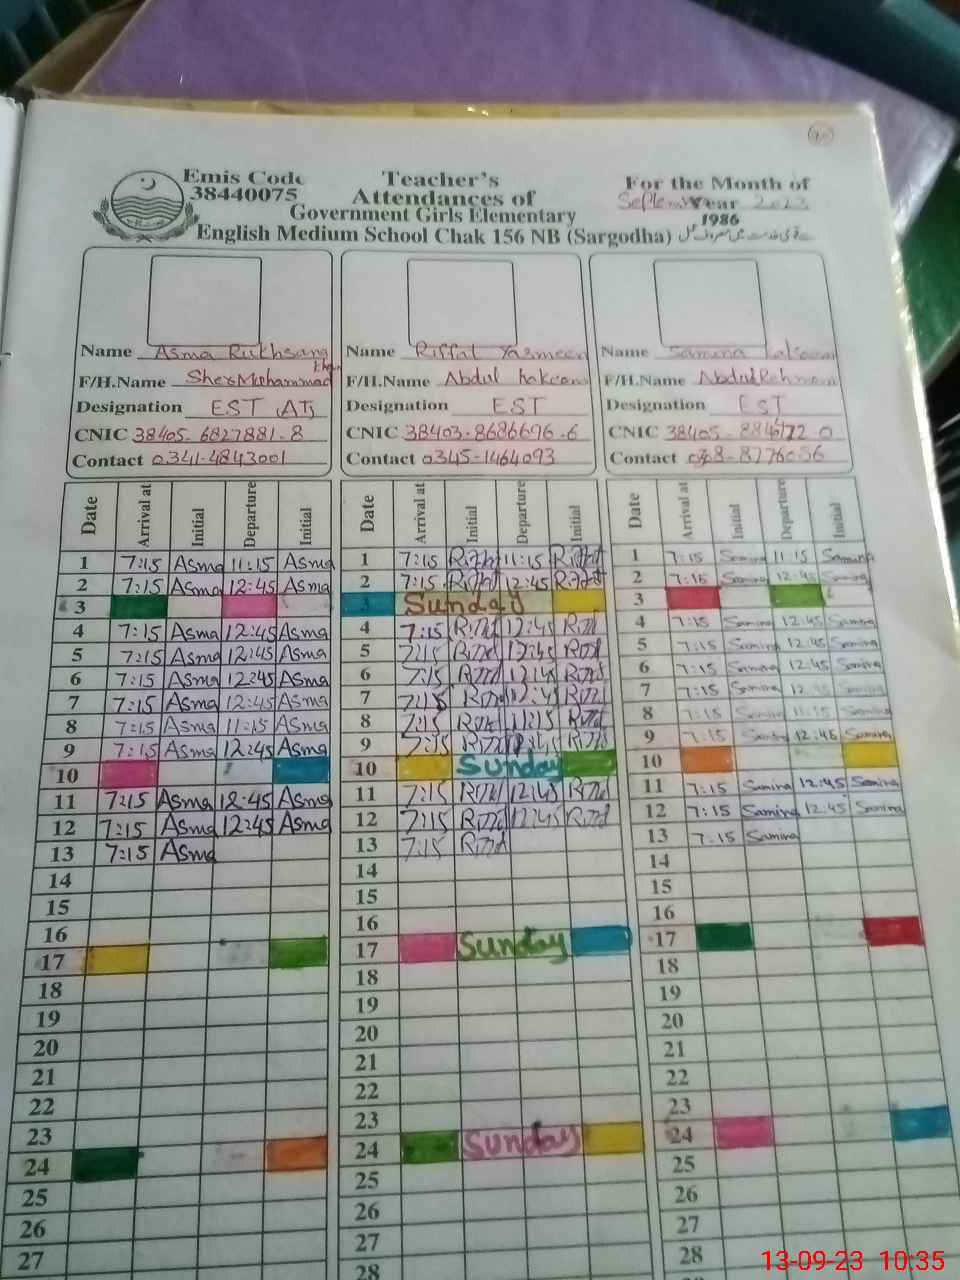 90
Emis Code
38440075
Teacher's
Attendances of
Government Girls Elementary
English Medium School Chak 156 NB (Sargodha)
For the Month of
Year 2023
1986
Name Asma Rukhsana
F/H.Name Sher Muhammad Khan
Designation EST
CNIC 38405-6827881-8
Contact 0341-4843001
Name Riffat Yasmeen
F/H.Name Abdul hakeem
Designation EST
CNIC 38403-8686696-6
Contact 0345-1464093
Name Samina
F/H.Name Abdul Rehman
Designation EST
CNIC 38405-
Contact
Date Arrival at Initial Departure Initial
1 7:15 Asma 11:15 Asma
2 7:15 Asma 12:45 Asma
3
4 7:15 Asma 12:45 Asma
5 7:15 Asma 12:45 Asma
6 7:15 Asma 12:45 Asma
7 7:15 Asma 12:45 Asma
8 7:15 Asma 11:15 Asma
9 7:15 Asma 12:45 Asma
10
11 7:15 Asma 12:45 Asma
12 7:15 Asma 12:45 Asma
13 7:15 Asma
14
15
16
17
18
19
20
21
22
23
24
25
26
27
Date Arrival at Initial Departure Initial
1 7:15 11:15
2 7:15 12:45
3 Sunday
4 7:15 12:45
5 7:15 12:45
6 7:15 12:45
7 7:15 12:45
8 7:15 11:15
9 7:15 12:45
10 Sunday
11 7:15 12:45
12 7:15 12:45
13 7:15
14
15
16
17 Sunday
18
19
20
21
22
23
24 Sunday
25
26
27
28
Date Arrival at Initial Departure Initial
1 7:15 Samina 11:15 Samina
2 7:15 Samina 12:45 Samina
3
4 7:15 Samina 12:45 Samina
5 7:15 Samina 12:45 Samina
6 7:15 Samina 12:45 Samina
7 7:15 Samina 12:45 Samina
8 7:15 Samina 11:15 Samina
9 7:15 Samina 12:45 Samina
10
11 7:15 Samina 12:45 Samina
12 7:15 Samina 12:45 Samina
13 7:15 Samina
14
15
16
17
18
19
20
21
22
23
24
25
26
27
28
13-09-23 10:35